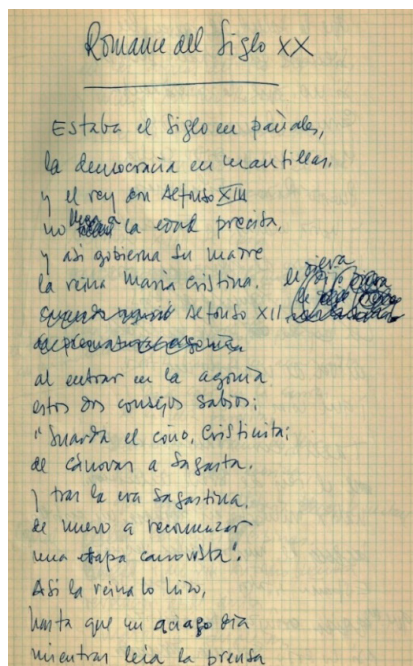 Romance del Siglo XX
Estaba el Siglo en pañales,
la democracia en mantillas,
y el rey don Alfonso XIII
no llega a la edad precisa,
y así gobierna su madre
la reina María Cristina.
Alfonso XII le diera
al entrar en la agonía
estos dos consejos sabios:
"Guarda el coño, Cristinita;
de Cánovas a Sagasta.
y tras la era Sagastina,
de nuevo a recomenzar
una etapa canovista".
Así la reina lo hizo,
hasta que un aciago día
mientras leía la prensa